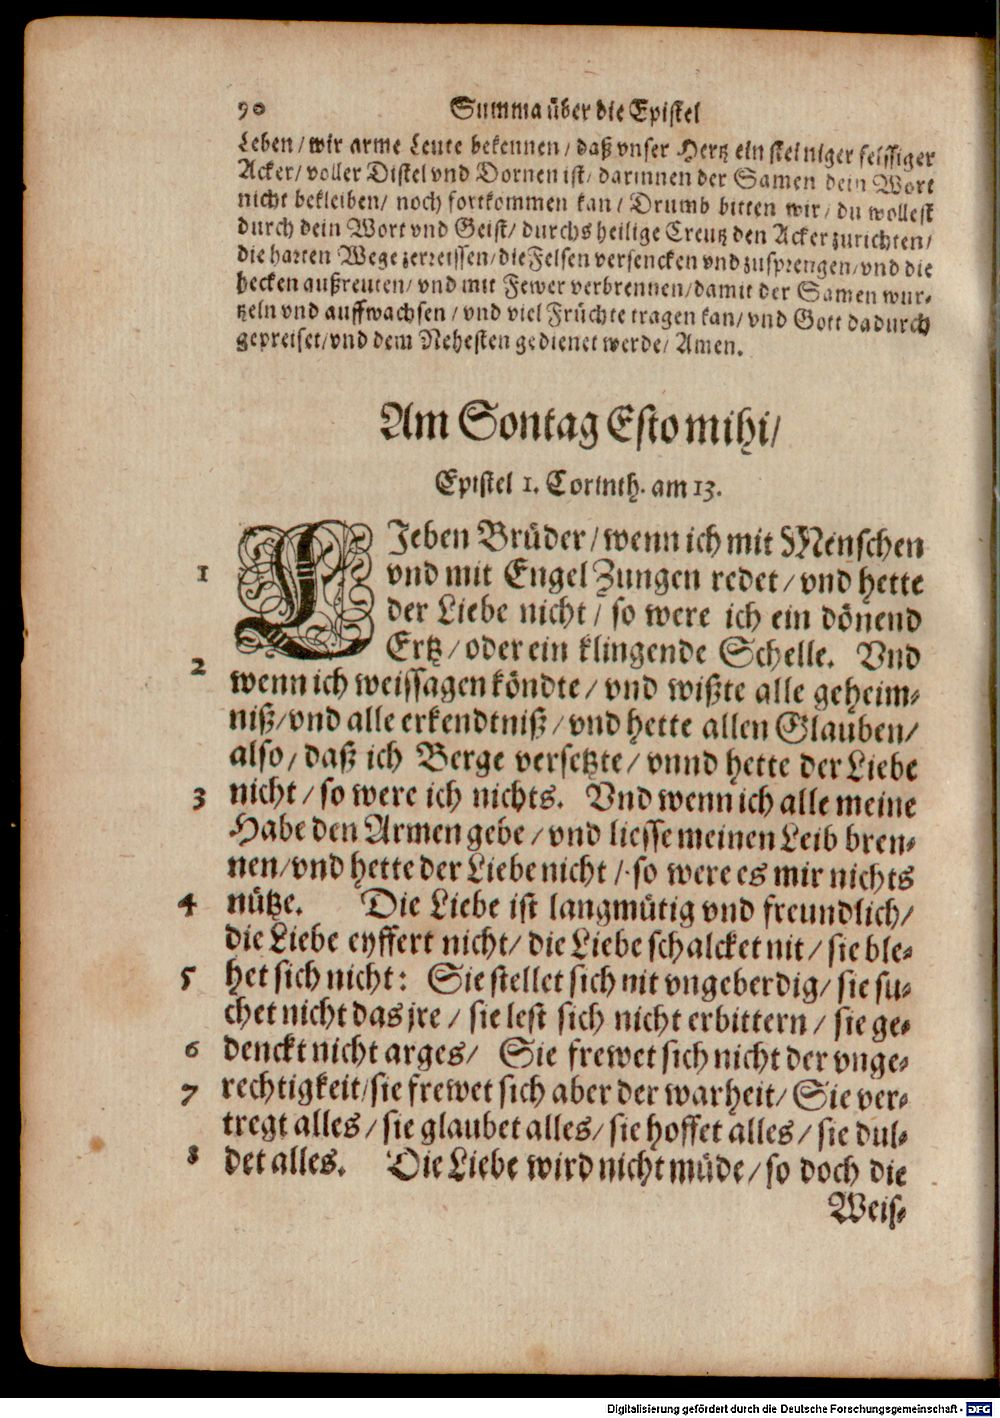 90 Summa über die Epistel
Leben / wir arme Leute bekennen / daß vnser Hertz ein steiniger felssiger
Acker / voller Distel vnd Dornen ist / darinnen der Samen dein Wort
nicht bekleiben / noch fortkommen kan / Drumb bitten wir / du wollest
durch dein Wort vnd Geist / durchs heilige Creutz den Acker zurichten /
die harten Wege zerreissen / die Felsen versencken vnd zusprengen / vnd die
hecken außreuten / vnd mit Fewer verbrennen / damit der Samen wur-
tzeln vnd auffwachsen / vnd viel Früchte tragen kan / vnd Gott dadurch
gepreiset / vnd dem Nehesten gedienet werde / Amen.
Am Sontag Esto mihi /
Epistel 1. Corinth. am 13.
1 LJeben Brüder / wenn ich mit Menschen
vnd mit Engel Zungen redet / vnd hette
der Liebe nicht / so were ich ein dönend
Ertz / oder ein klingende Schelle. Vnd
2 wenn ich weissagen köndte / vnd wißte alle geheim-
niß / vnd alle erkendtniß / vnd hette allen Glauben /
also / daß ich Berge versetzte / vnnd hette der Liebe
3 nicht / so were ich nichts. Vnd wenn ich alle meine
Habe den Armen gebe / vnd liesse meinen Leib bren-
nen / vnd hette der Liebe nicht / so were es mir nichts
4 nütze. Die Liebe ist langmütig vnd freundlich /
die Liebe eyffert nicht / die Liebe schalcket nit / sie ble-
5 het sich nicht: Sie stellet sich nit vngeberdig / sie su-
chet nicht das jre / sie lest sich nicht erbittern / sie ge-
6 denckt nicht arges / Sie frewet sich nicht der vnge-
7 rechtigkeit / sie frewet sich aber der warheit / Sie ver-
tregt alles / sie glaubet alles / sie hoffet alles / sie dul-
8 det alles. Die Liebe wird nicht müde / so doch die
Weis-
Digitalisierung gefördert durch die Deutsche Forschungsgemeinschaft - DFG